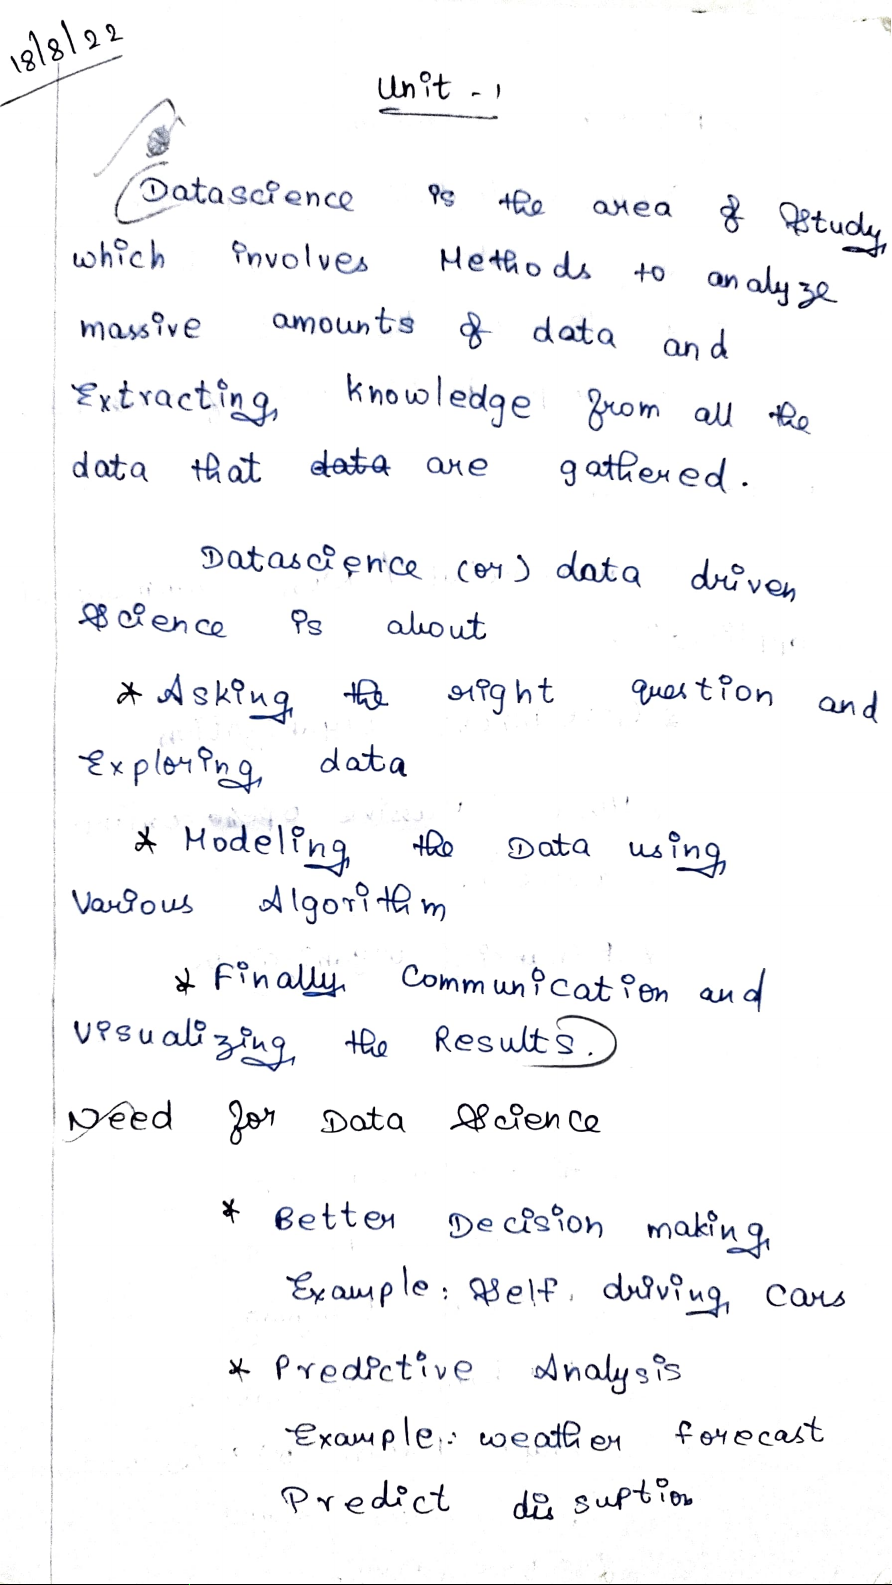 18/8/22
Unit - 1
Datascience is the area of Study
which involves Methods to analyze
massive amounts of data and
Extracting knowledge from all the
data that data are gathered.
Datascience (or) data driven
Science is about
* Asking the right question and
Exploring data
* Modeling the Data using
Various Algorithm
* Finally Communication and
Visualizing the Results.
Need for Data Science
* Better Decision making
Example: Self driving cars
* Predictive Analysis
Example: weather forecast
Predict disuption